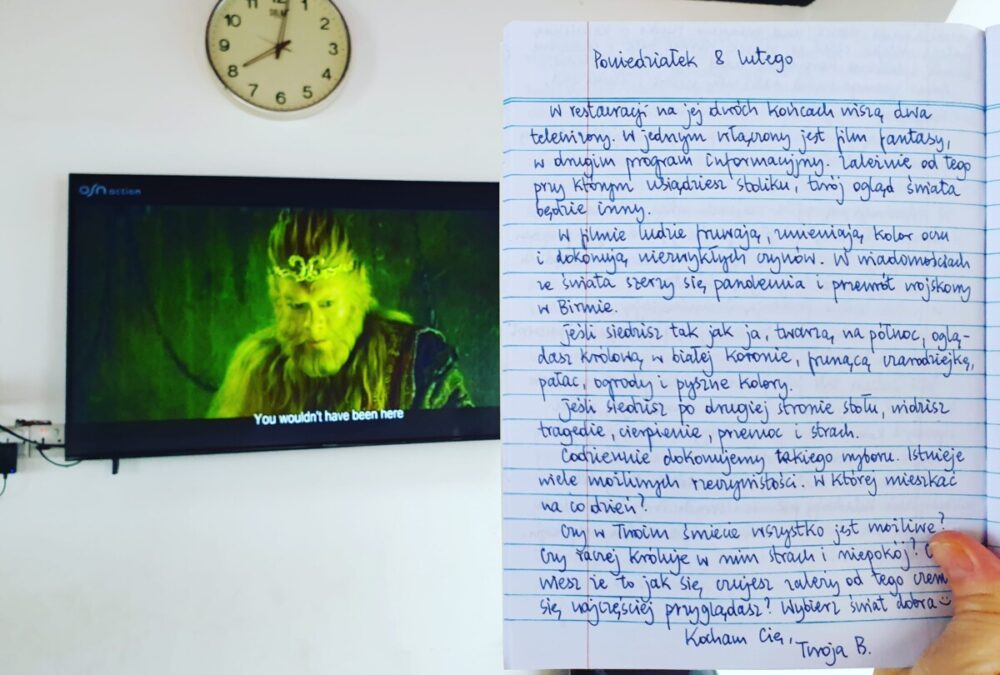 12
1
2
3
4
5
6
7
8
9
10
osn action
You wouldn't have been here
Poniedziałek 8 lutego
W restauracji na jej dwóch końcach wiszą dwa
telewizory. W jednym włączony jest film fantasy,
w drugim program informacyjny. Zależnie od tego
przy którym usiądziesz stoliku, twój ogląd świata
będzie inny.
W filmie ludzie fruwają, zmieniają kolor oczu
i dokonują niezwykłych czynów. W wiadomościach
ze świata szerzy się pandemia i przewrót wojskowy
w Birmie.
Jeśli siedzisz tak jak ja, twarzą na północ, oglą-
dasz królową w białej koronie, frunącą czarodziejkę,
pałac, ogrody i pyszne kolory.
Jeśli siedzisz po drugiej stronie stołu, widzisz
tragedie, cierpienie, przemoc i strach.
Codziennie dokonujemy takiego wyboru. Istnieje
wiele możliwych rzeczywistości. W której mieszkać
na co dzień?
Czy w Twoim świecie wszystko jest możliwe?
Czy raczej króluje w nim strach i niepokój?
wiesz że to jak się czujesz zależy od tego czem
się najczęściej przyglądasz? Wybierz świat dobra
Kocham Cię,
Twoja B.